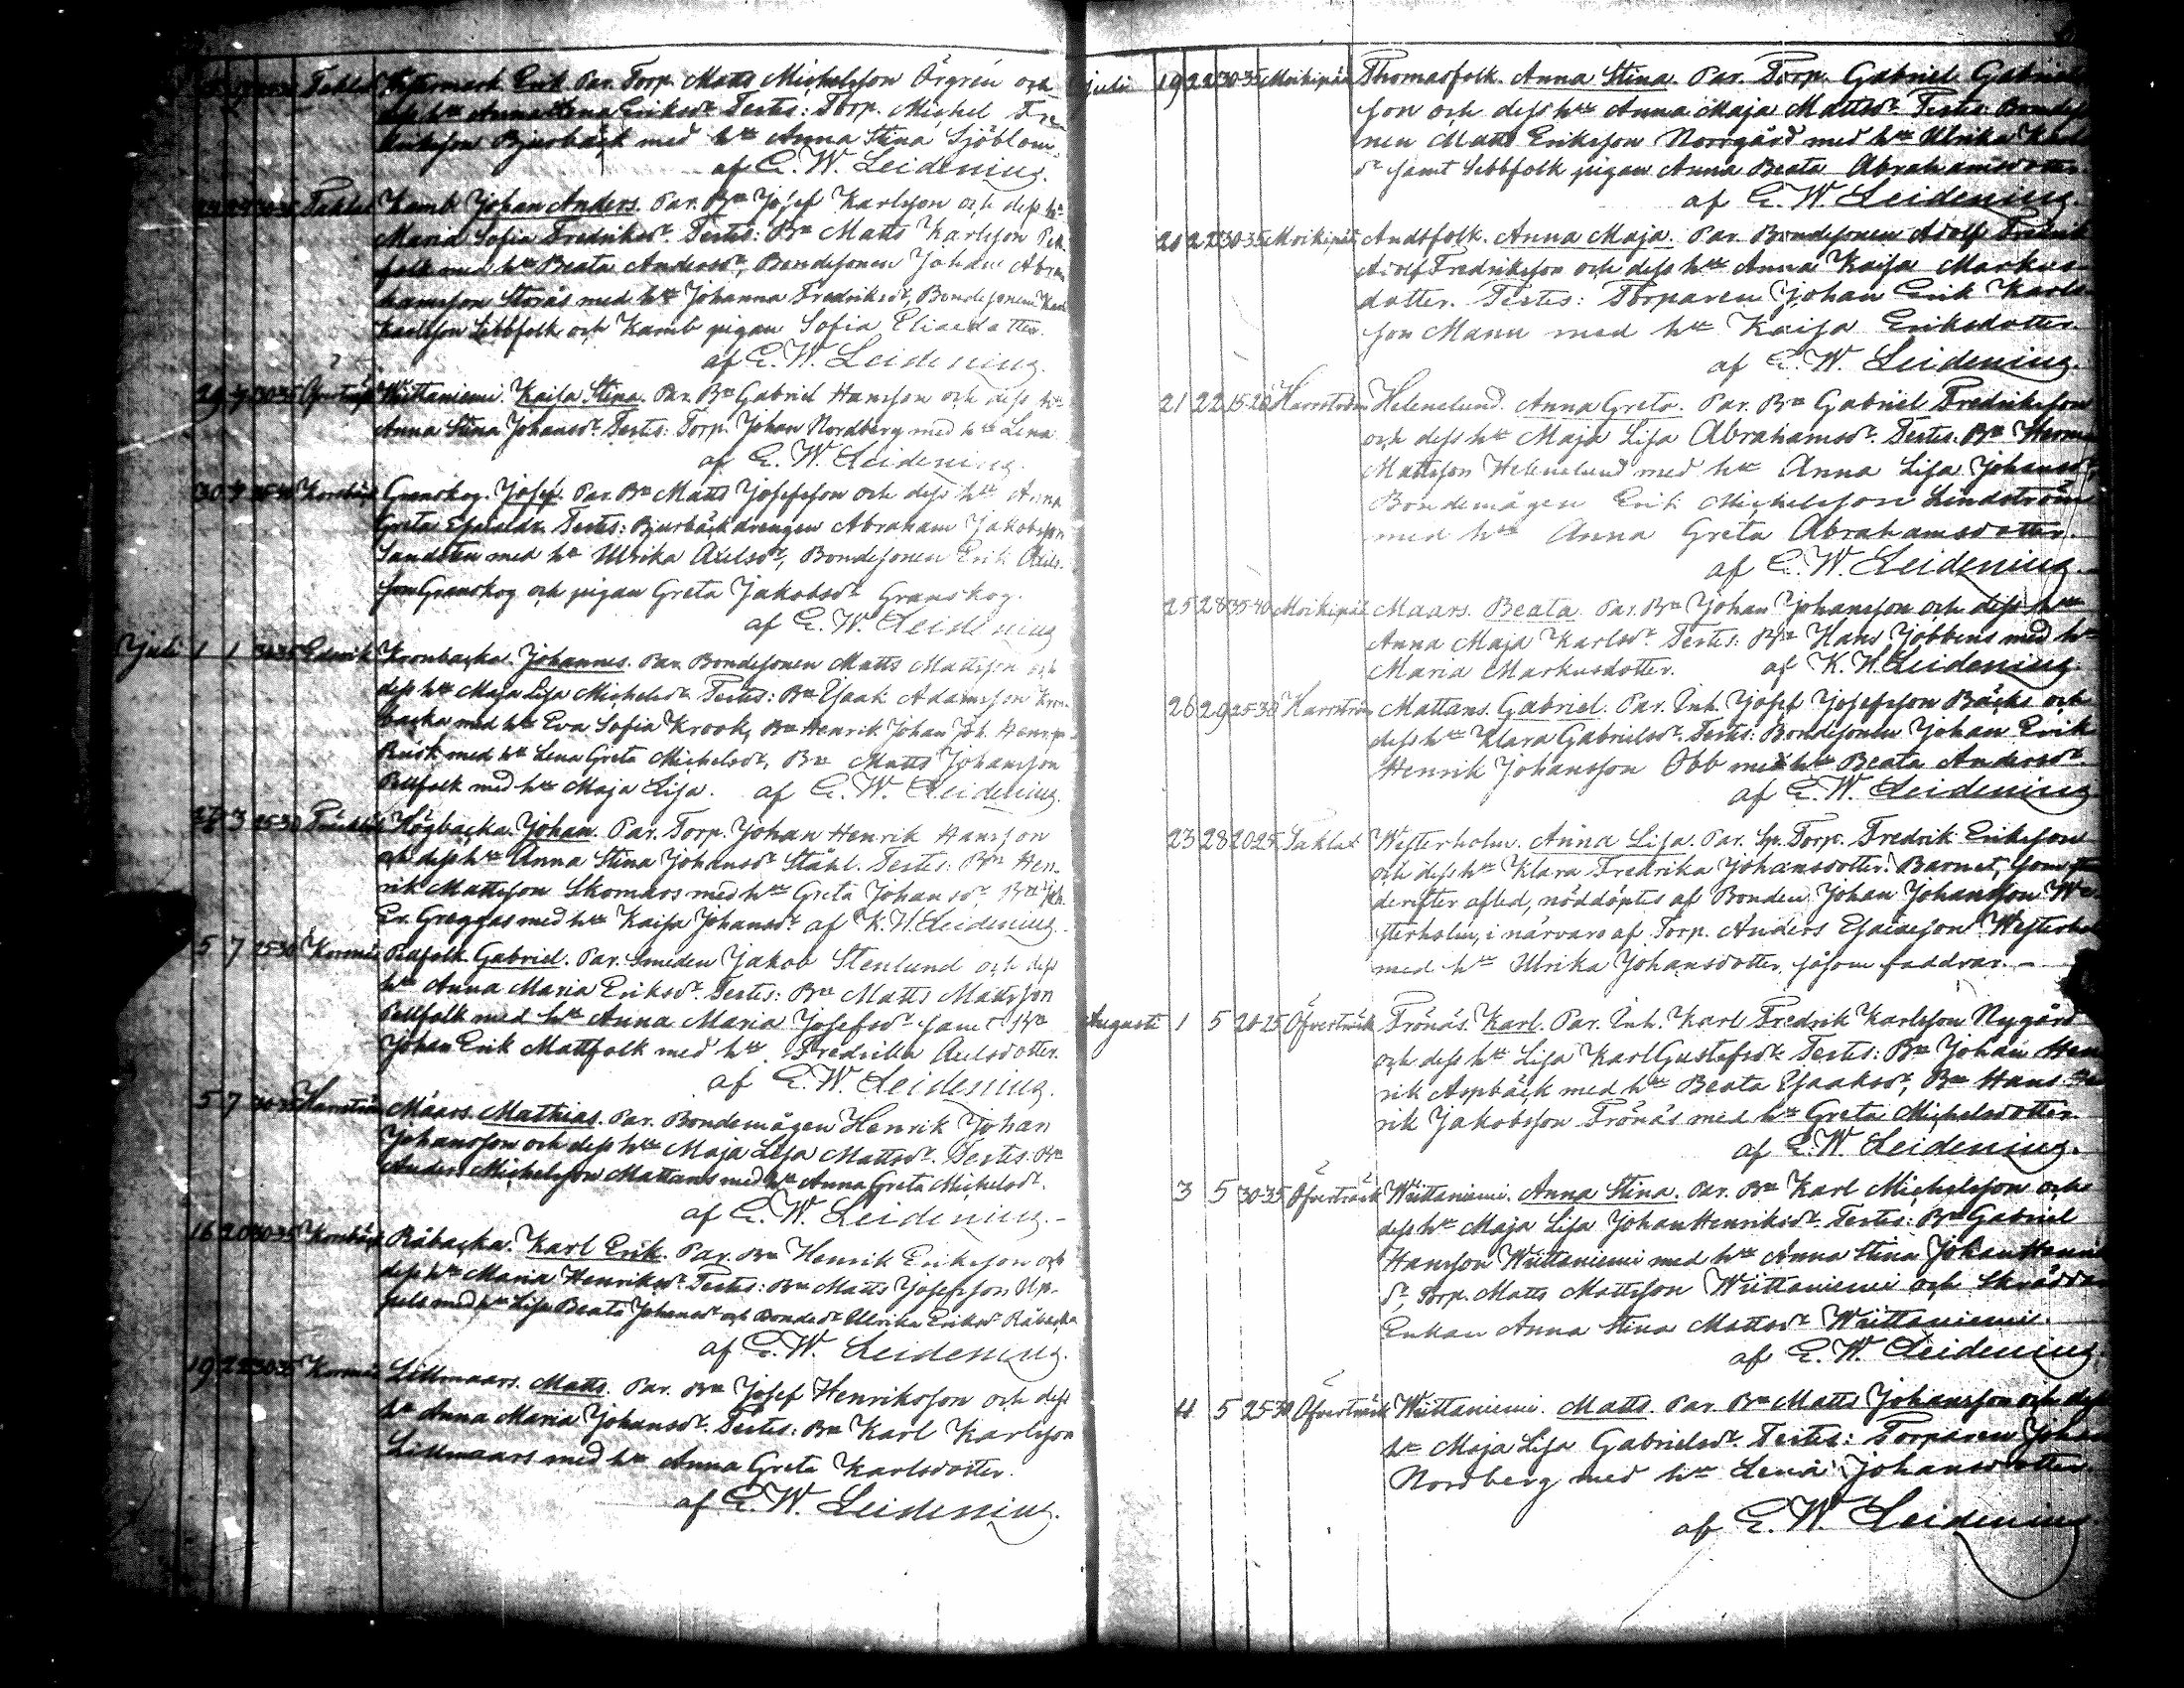 Taklax Westermark Erik Par. Torp. Matts Michelsson Örgren och
dess h:u Anna Lena Eriksd:r Testes: Torp. Michel
Eriksson Bjurbäck med h:u Anna Stina Sjöblom.
af E. W. Leidenius.
Taklax Kamb Johan Anders. Par. B:n Josef Karlsson och dess h:u
Maria Sofia Fredriksd:r Testes: B:n Matts Karlsson
folk med h:u Beata Andersd:r, Bondesonen Johan Abra
hamsson Storås med h:u Johanna Fredriksd:r, Bondesonen
Karlsson Sebbfolk och Kamb pigan Sofia Eliaedotter.
af E. W. Leidenius.
29 Wiittaniemi. Kaisa Stina. Par. B:n Gabriel Hansson och dess h:u
Anna Stina Johansd:r Testes: Torp. Johan Nordberg med h:u Lena
af E. W. Leidenius.
30 Korsbäck Granskog. Josef. Par. B:n Matts Josefsson och dess h:u Anna
Greta Testes: Bjurbäck drengen Abraham Jakobsson
Sandsten med h:u Ulrika Axelsd:r, Bondesonen Erik Axels-
son Granskog och pigan Greta Jakobsd:r Granskog.
af E. W. Leidenius
Juli 1 1 30-35 Edsvik Kronbacka. Johannes. Par. Bondesonen Matts Mattsson och
dess h:u Maja Lisa Michelsd:r Testes: B:n Isaak Adamsson Kron-
backa med h:u Eva Sofia Krook, B:n Henrik Johan Joh. Henrs
Rusk med h:u Lena Greta Michelsd:r, B:n Matts Johansson
Pellfolk med h:u Maja Lisa. af E. W. Leidenius.
3 25-30 Högbacka. Johan. Par. Torp. Johan Henrik Hansson
och dess h:u Anna Stina Johansd:r Ståhl. Testes: B:n Hen-
rik Mattsson Skomars med h:u Greta Johansd:r, B:n Joh.
Er. Greggas med h:u Kaisa Johansd:r af K. H. Leidenius.
5 7 25-30 Korsnäs Pellfolk. Gabriel. Par. Smeden Jakob Stenlund och dess
h:u Anna Maria Eriksd:r. Testes: B:n Matts Mattsson
Pellfolk med h:u Anna Maria Josefsd:r samt B:n
Johan Erik Mattfolk med h:u Fredrika Axelsdotter.
af E. W. Leidenius.
5 7 30-35 Harrström Maars. Mathias. Par. Bondemågen Henrik Johan
Johansson och dess h:u Maja Lisa Mattsd:r. Testes: B:n
Anders Michelsson Mattans med h:u Anna Greta Michelsd:r.
af E. W. Leidenius.-
16 20 30-35 Korsbäck Råbacka. Karl Erik. Par. B:n Henrik Eriksson och
dess h:u Maria Henriksd:r. Testes: B:n Matts Josefsson Up-
pels med h:u Lisa Beata Johansd:r och Bonded:r Ullrika Eriksd:r Råbacka
af E. W. Leidenius.
19 22 30-35 Korsnäs Lillmaars. Matts. Par. B:n Josef Henriksson och dess
h:u Anna Maria Johansd:r. Testes: B:n Karl Karlsson
Lillmaars med h:u Anna Greta Karlsdotter.
af E. W. Leidenius.
Juli 19 22 30-35 Moikipää Thomasfolk. Anna Stina. Par. Torp. Gabriel Gabriels
son och dess h:u Anna Maja Mattsd:r Testes: Bondeso
nen Matts Eriksson Norrgård med h:u Ulrika Karls
d:r samt Sebbfolk pigan Anna Beata Abrahamsdotter
af E. W. Leidenius.
20 22 30-35 Moikipää Andsfolk. Anna Maja. Par. Bondesonen Adolf Fredrik
Adolf Fredriksson och dess h:u Anna Kaisa Markus
dotter. Testes: Torparen Johan Erik Karls
son Mann med h:u Kaisa Eriksdotter.
af E. W. Leidenius.
21 22 15-20 Harrström Helenelund. Anna Greta. Par. B:n Gabriel Fredriksson
och dess h:u Maja Lisa Abrahamsd:r. Testes: B:n Herman
Mattsson Helenelund med h:u Anna Lisa Johansd:r,
Bondemågen Erik Michelsson Lindström
med h:u Anna Greta Abrahamsdotter.
af E. W. Leidenius.
25 28 35-40 Moikipää Maars. Beata. Par. B:n Johan Johansson och dess h:u
Anna Maja Karlsd:r Testes: B:n Hans Jobbens med h:u
Maria Markusdotter. af K. H. Leidenius.
26 29 25-30 Harrström Mattans. Gabriel. Par. Inh. Josef Josefsson Bäcks och
dess h:u Klara Gabrielsd:r. Testes: Bondesonen Johan Erik
Henrik Johansson Obb med h:u Beata Andersd:r
af E. W. Leidenius
23 28 20-25 Taklax Westerholm. Anna Lisa. Par. Sp. Torp. Fredrik Eriksson
och dess h:u Klara Fredrika Johansdotter. Barnet, som
derefter afled, nöddöptes af Bonden Johan Johansson We-
sterholm, i närvaro af Torp. Anders Esaiasson Westerholm
med h:u Ulrika Johansdotter, såsom faddrar.-
Augusti 1 5 20-25 Öfverträsk Frönäs. Karl. Par. Inh. Karl Fredrik Karlsson Nygård
och dess h:u Lisa Karl Gustafsd:r. Testes: B:n Johan Hen
rik Aspbäck med h:u Beata Isaaksd:r, B:n Hans
rik Jakobsson Frönäs med h:u Greta Michelsdotter.
af E. W. Leidenius.
3 5 30-35 Öfverträsk Wiittaniemi. Anna Stina. Par. B:n Karl Michelsson och
dess h:u Maja Lisa Johan Henriksd:r. Testes: B:n Gabriel
Hansson Wiittaniemi med h:u Anna Stina Johan Henriks
d:r, Torp. Matts Mattsson Wiittaniemi och Skrädda
Enkan Anna Stina Mattsd:r Wiittaniemi.
af E. W. Leidenius.
4 5 25-30 Öfverträsk Wiittaniemi. Matts. Par. B:n Matts Johansson och dess
h:u Maja Lisa Gabrielsd:r. Testes: Torparen Johan
Nordberg med h:u Lena Johansdotter.
af E. W. Leidenius